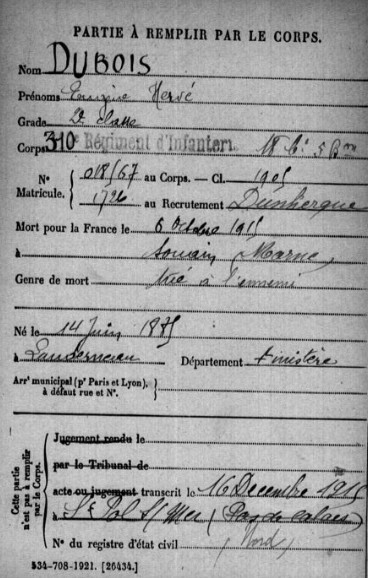 PARTIE À REMPLIR PAR LE CORPS.
Nom DUBOIS
Prénoms Hervé
Grade 2e classe
Corps 310e Régiment d'Infanterie
N° 018567 au Corps. — Cl. 1905
Matricule. 1726 au Recrutement Dunkerque
Mort pour la France le 6 Octobre 1915
à Souain Marne
Genre de mort tué à l'ennemi
Né le 14 Juin 1885
à Landerneau Département Finistère
Arr¹ municipal (pʳ Paris et Lyon),
à défaut rue et N°.
Cette partie
n'est pas à remplir
par le Corps.
Jugement rendu le
par le Tribunal de
acte ou jugement transcrit le 16 Décembre 1915
à St Pol S/Mer (Pas de Calais)
N° du registre d'état civil (Nord)
534-708-1921. [26434.]